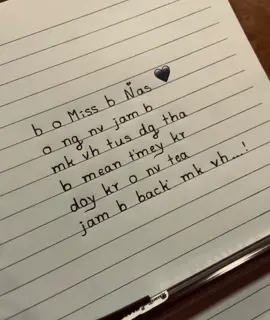 b o Miss b Ñas
o ng nv jam b
mk vh tus dg tha
b mean t'mey kr
doy kr o nv tea
jam b back mk vh....!